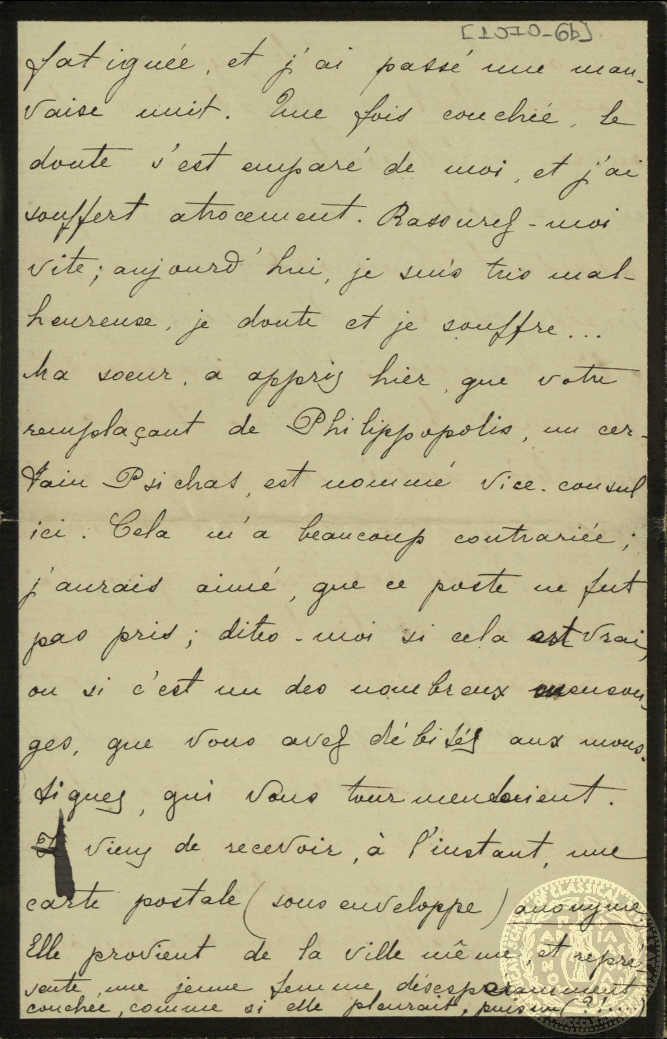 fatiguée, et j'ai passé une mau-
vaise nuit. Une fois couchée, le
doute s'est emparé de moi, et j'ai
souffert atrocement. Rassurez-moi
vite; aujourd'hui, je suis très mal-
heureuse, je doute et je souffre...
Ma soeur, a appris hier, que votre
remplaçant de Philippopolis, un cer-
tain Psichas, est nommé vice-consul
ici. Cela m'a beaucoup contrariée;
j'aurais aimé, que ce poste ne fut
pas pris; dites-moi si cela est vrai,
ou si c'est un des nombreux menson-
ges, que vous avez débités aux mous-
tiques, qui vous tourmentaient.
Je viens de recevoir, à l'instant, une
carte postale (sous enveloppe) anonyme.
Elle provient de la ville même, et repré-
sente, une jeune femme, désespéramment
couchée, comme si elle pleurait, puis un (?!...)